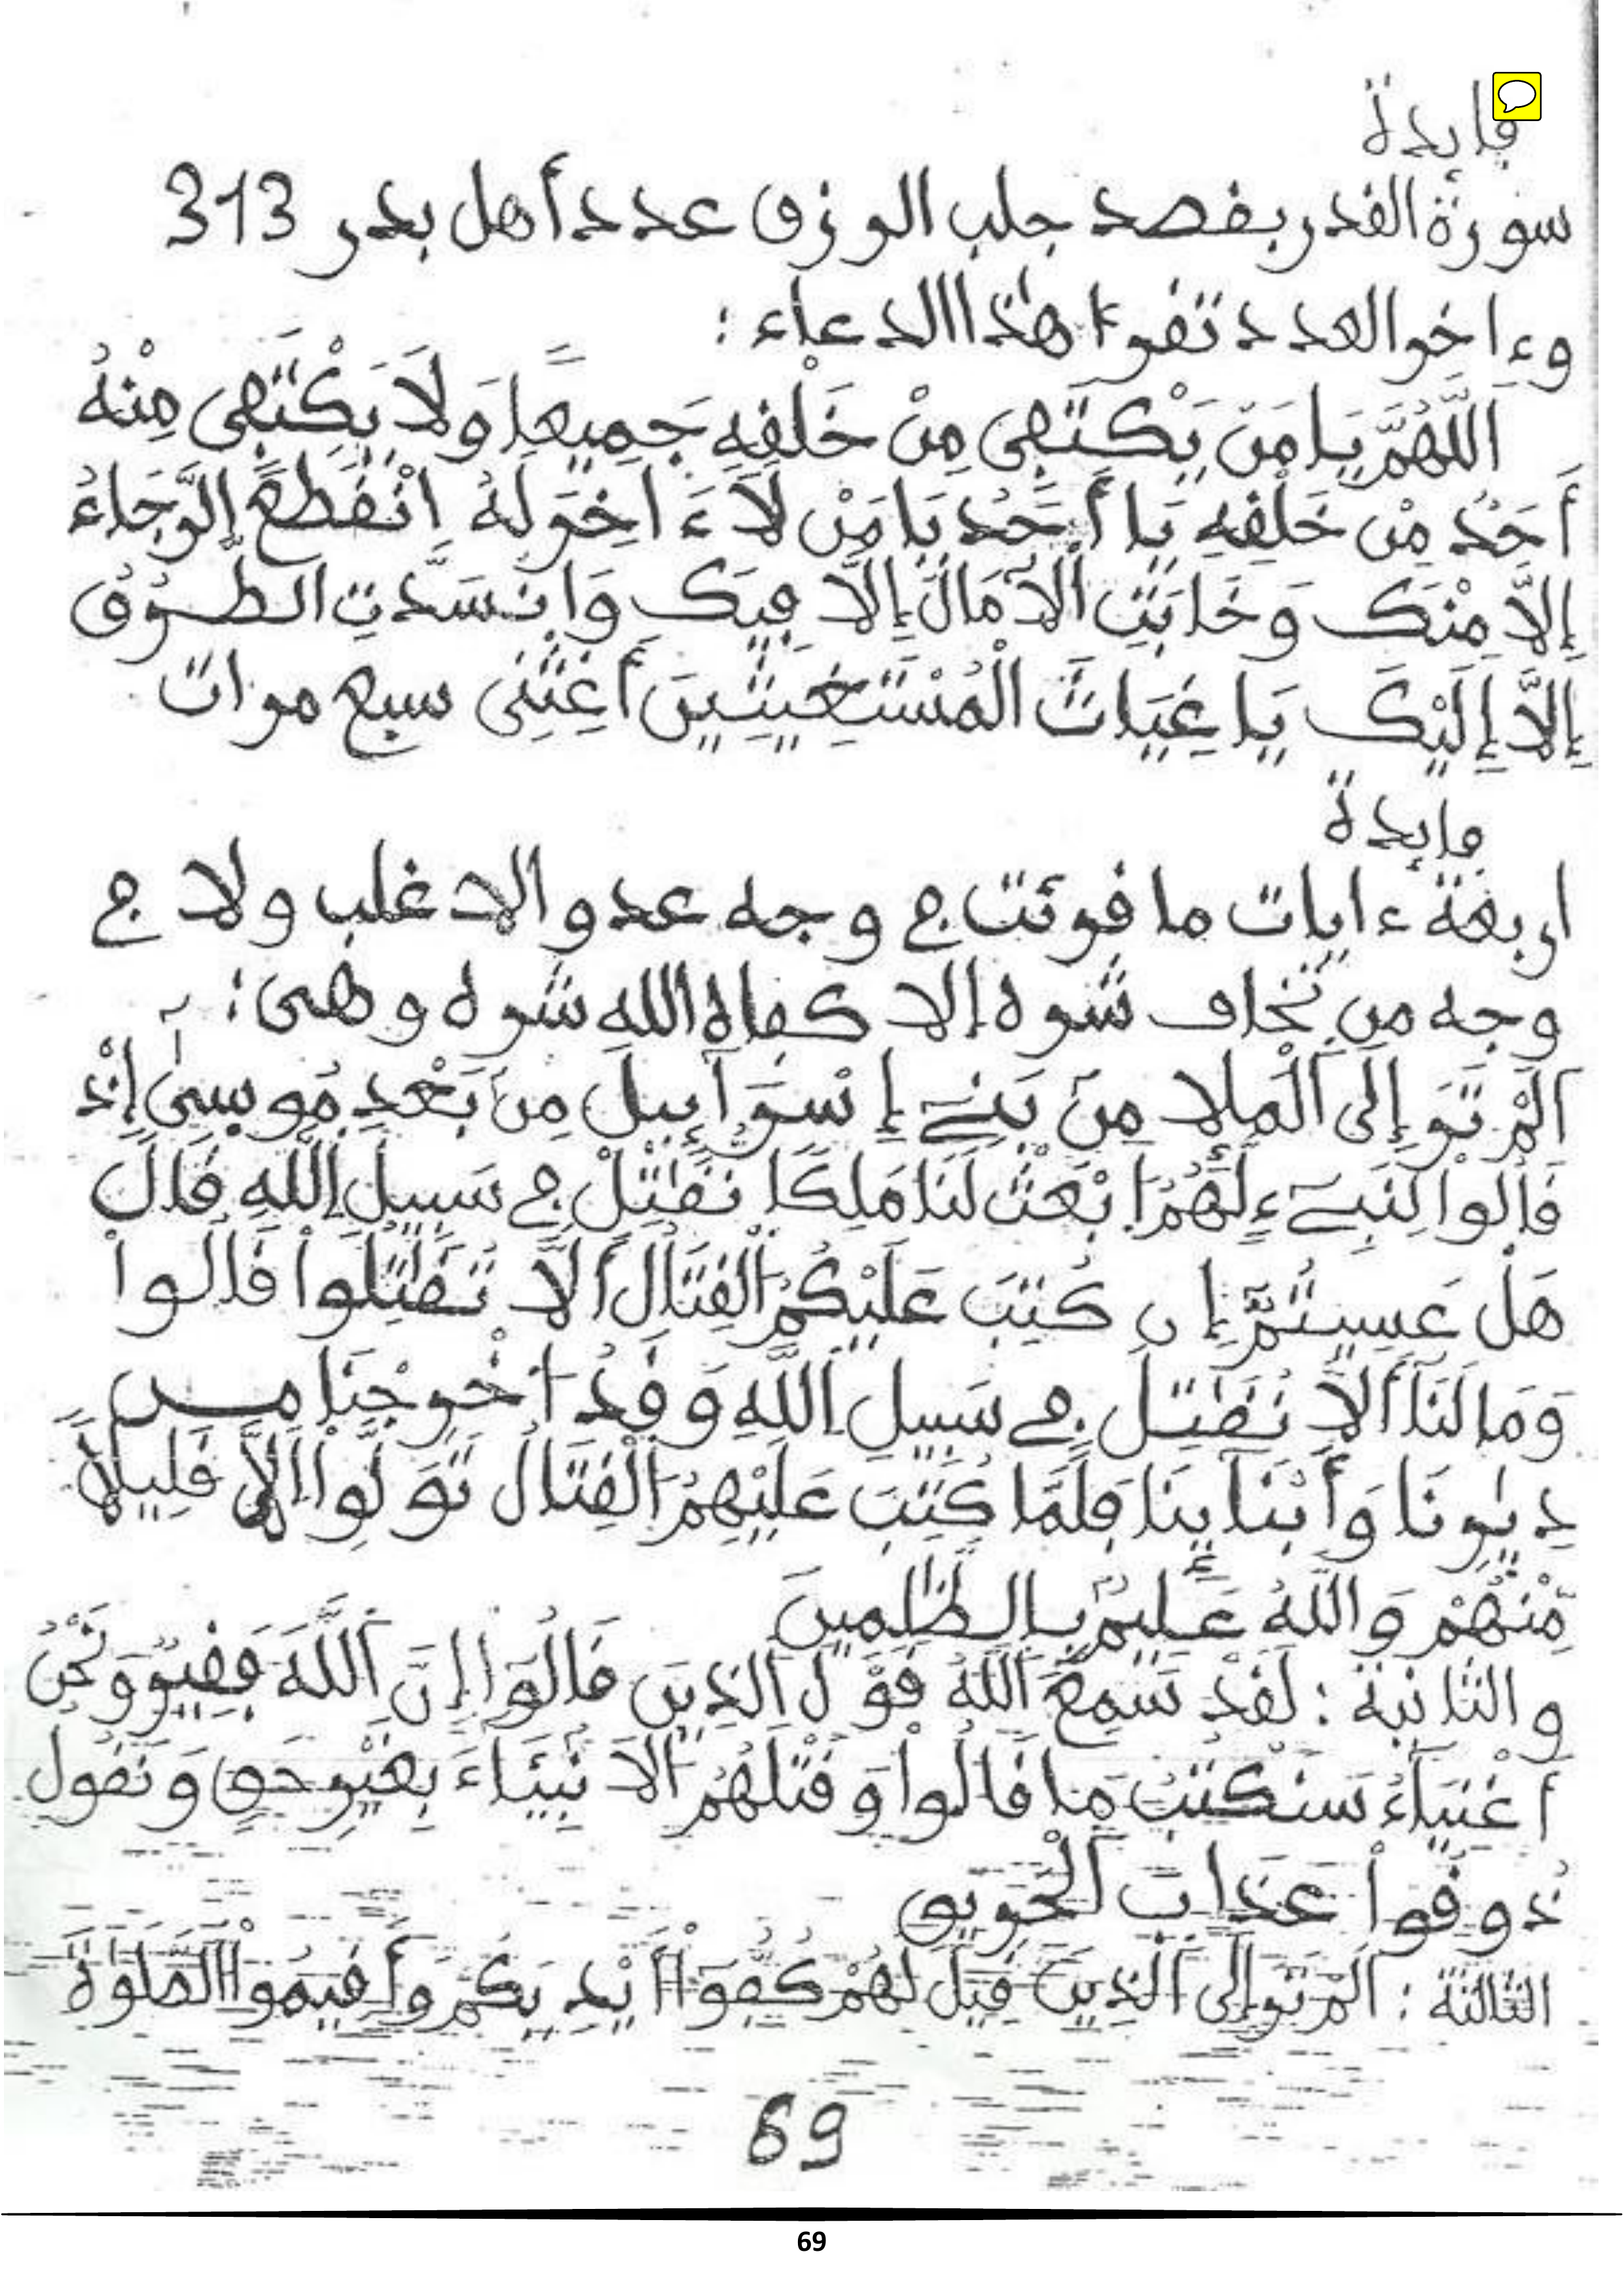 فايدة
سورة القدر بقصد جلب الرزق عدد أهل بدر 313
وءاخر العدد تقرء هذا الدعاء :
اَللَّهُمَّ يَا مَنْ يَكْتَفِى مِنْ خَلْقِهِ جَمِيعًا وَلَا يَكْتَفِى مِنْهُ
أَحَدٌ مِنْ خَلْقِهِ يَا أَحَدُ يَا مَنْ لَا ءَاخِرَ لَهُ اِنْقَطَعَ الرَّجَاءُ
إِلَّا مِنْكَ وَخَابَتِ الْآمَالُ إِلَّا فِيكَ وَانْسَدَّتِ الطُّرُقُ
إِلَّا إِلَيْكَ يَا غِيَاثَ الْمُسْتَغِيثِينَ أَغِثْنِى سبع مرات
فايدة
اربعة ءايات ما قرئت في وجه عدو الا غلب ولا في
وجه من تخاف شره إلا كفاه الله شره وهى :
اَلَمْ تَرَ إِلَى اَلْمَلَإِ مِنۢ بَنِے إِسْرَآءِيلَ مِنۢ بَعْدِ مُوسىٰ إِذْ
قَالُواْ لِنَبِےٓءٍ لَّهُمُ ابْعَثْ لَنَا مَلِكًا نُّقَٰتِلْ فِے سَبِيلِ اِللَّهِ قَالَ
هَلْ عَسِيتُمُ إِن كُتِبَ عَلَيْكُمُ اُلْقِتَالُ أَلَّا تُقَٰتِلُواْ قَالُواْ
وَمَا لَنَآ أَلَّا نُقَٰتِلَ فِے سَبِيلِ اِللَّهِ وَقَدُ اخْرِجْنَا مِن
دِيٰرِنَا وَأَبْنَآيِنَا فَلَمَّا كُتِبَ عَلَيْهِمُ اُلْقِتَالُ تَوَلَّواْ اِلَّا قَلِيلًا
مِّنْهُمْ وَاللَّهُ عَلِيمُۢ بِالظَّٰلِمِينَ
والثانية : لَقَدْ سَمِعَ اَللَّهُ قَوْلَ اَلذِينَ قَالُوٓاْ إِنَّ اَللَّهَ فَقِيرٌ وَنَحْنُ
أَغْنِيَآءُ سَنَكْتُبُ مَا قَالُواْ وَقَتْلَهُمُ اُلَانۢبِئَآءَ بِغَيْرِ حَقٍ وَنَقُولُ
ذُوقُواْ عَذَابَ اَلْحَرِيقِ
الثالثة : اَلَمْ تَرَ إِلَى اَلذِينَ قِيلَ لَهُمْ كُفُّوٓاْ أَيْدِيَكُمْ وَأَقِيمُواْ الصَّلَوٰةَ
69
69